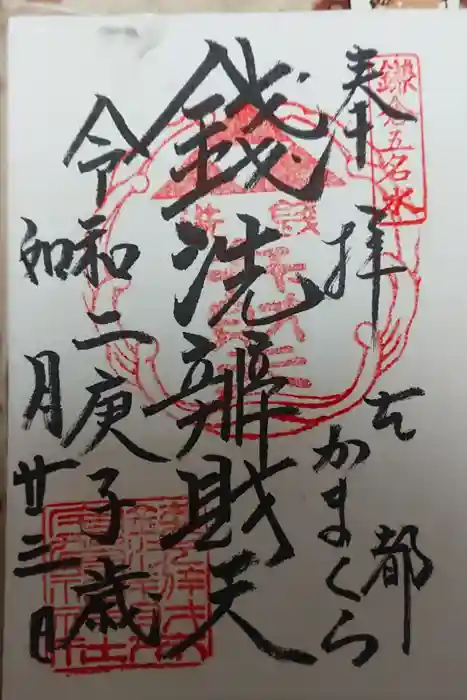 鎌倉五名水
奉拝
古都
かまくら
錢洗辨財天
令和二庚子歳
如月廿三日